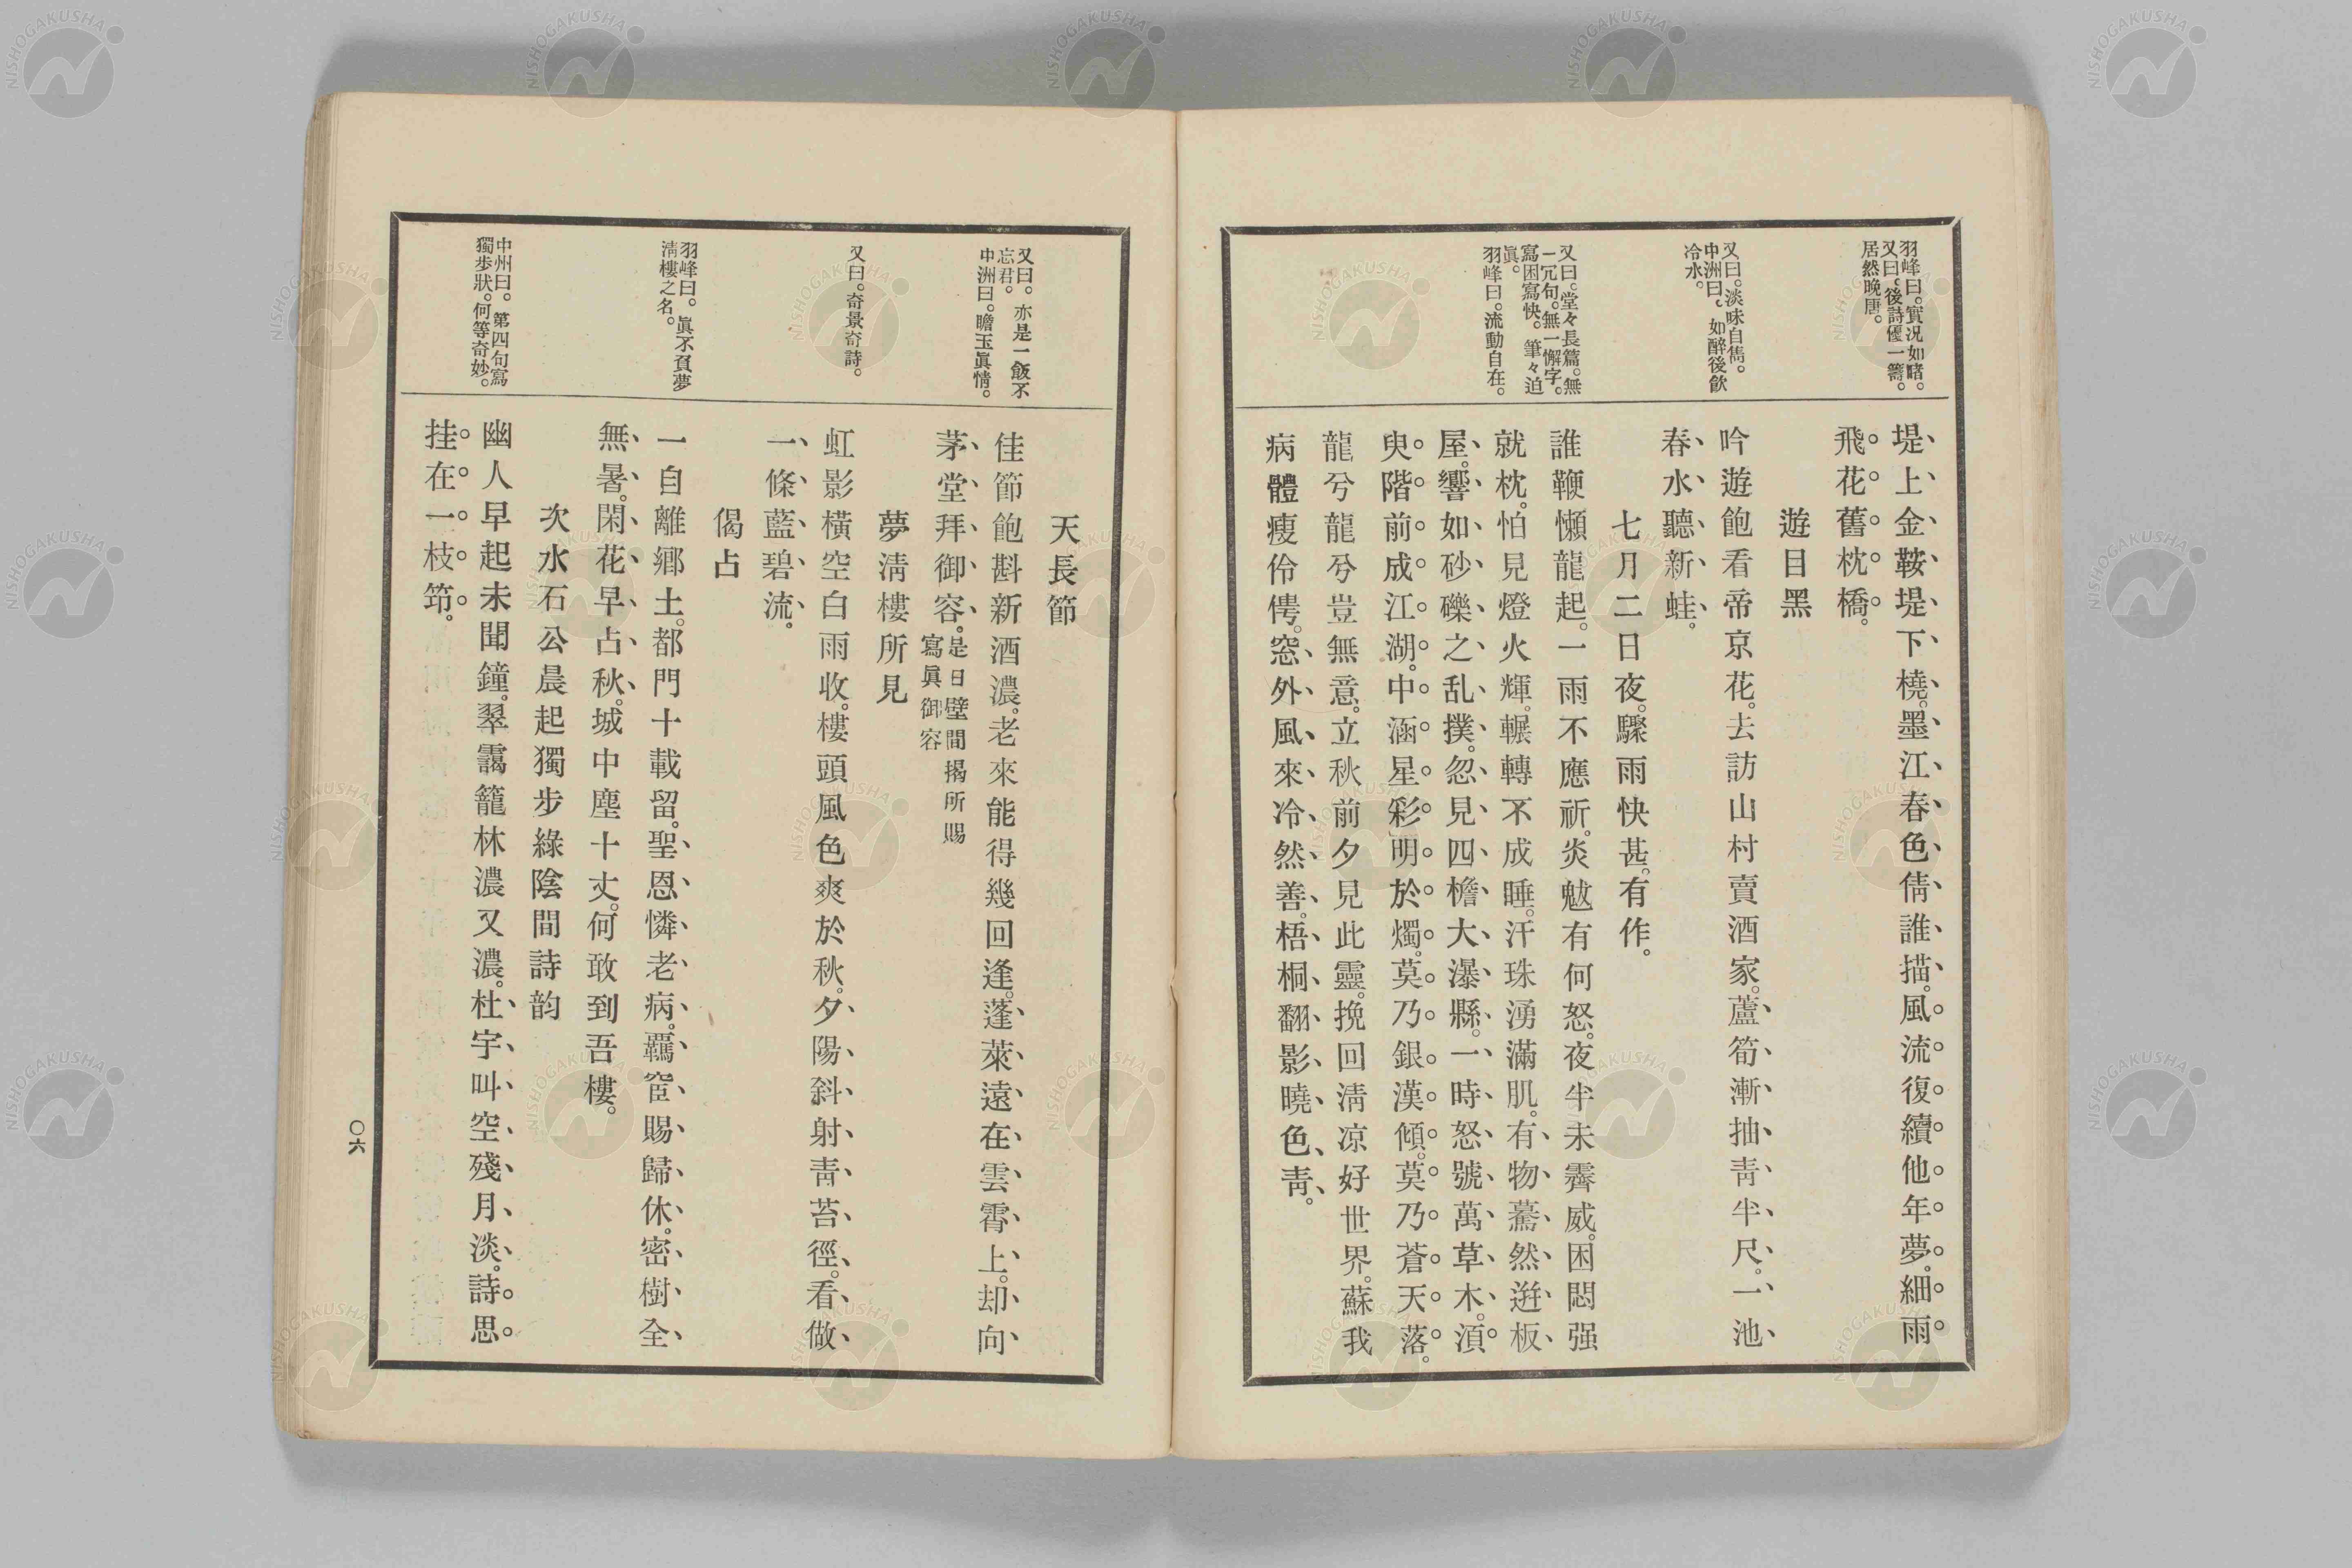 羽峰曰。實况如睹。
又曰。後詩優一籌。
居然晩唐。
又曰。淡味自雋。
中洲曰。如醉後飮
冷水。
又曰。堂々長篇。無
一冗句。無一懈字。
寫困寫快。筆々迫
眞。
羽峰曰。流動自在。
堤上金鞍堤下橈。墨江春色倩誰描。風流復續他年夢。細雨
飛花舊枕橋。
遊目黑
吟遊飽看帝京花。去訪山村賣酒家。蘆筍漸抽靑半尺。一池
春水聽新蛙。
七月二日夜。驟雨快甚。有作。
誰鞭懶龍起。一雨不應祈。炎魃有何怒。夜半未霽威。困悶强
就枕。怕見燈火輝。輾轉不成睡。汗珠湧滿肌。有物驀然逬板
屋。響如砂礫之乱撲。忽見四檐大瀑縣。一時怒號萬草木。湏
臾階前成江湖。中涵星彩明於燭。莫乃銀漢傾。莫乃蒼天落。
龍兮龍兮豈無意。立秋前夕見此靈。挽回淸凉好世界。蘇我
病體瘦伶俜。窓外風來冷然善。梧桐翻影曉色靑。
又曰。亦是一飯不
忘君。
中洲曰。瞻玉眞情。
又曰。奇景奇詩。
羽峰曰。眞不負夢
淸樓之名。
中州曰。第四句寫
獨步狀。何等奇妙。
天長節
佳節飽斟新酒濃。老來能得幾回逢。蓬萊遠在雲霄上。却向
茅堂拜御容。是日壁間揭所賜
寫眞御容
夢淸樓所見
虹影橫空白雨收。樓頭風色爽於秋。夕陽斜射靑苔徑。看做
一條藍碧流。
偈占
一自離鄕土。都門十載留。聖恩憐老病。羈宦賜歸休。密樹全
無暑。閑花早占秋。城中塵十丈。何敢到吾樓。
次水石公晨起獨步綠陰間詩韵
幽人早起未聞鐘。翠靄籠林濃又濃。杜宇叫空殘月淡。詩思
挂在一枝筇。
〇六